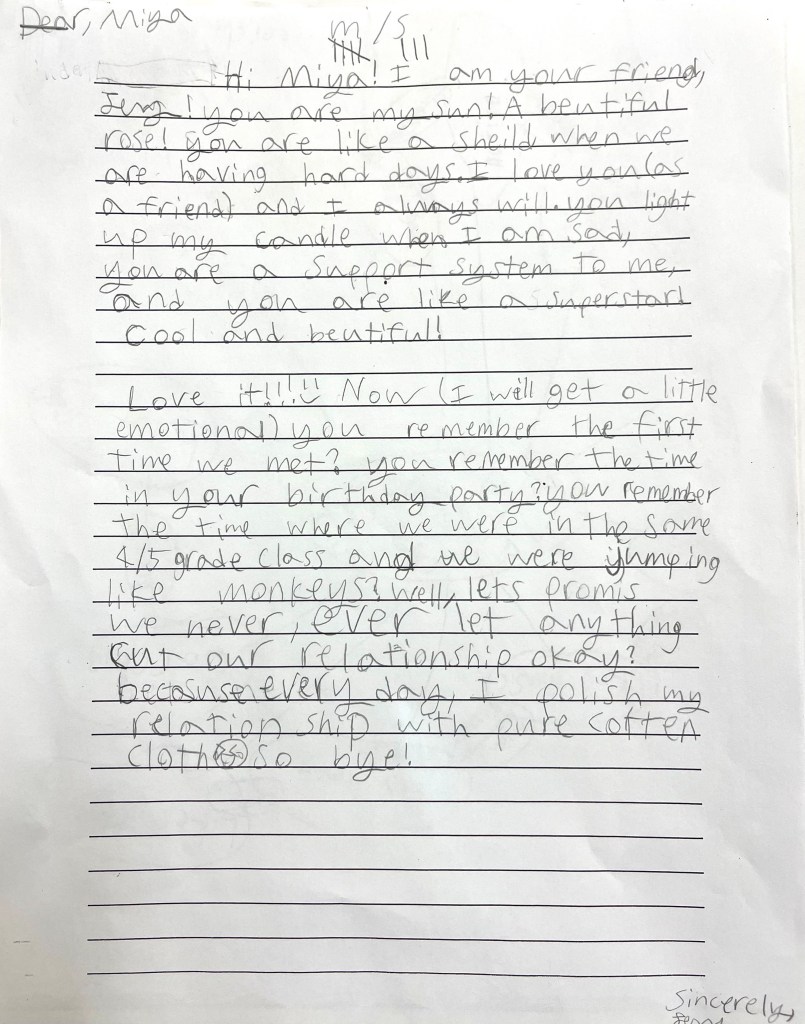 Dear, Miya
m/s
Hi Miya! I am your friend,
! you are my sun! A beutiful
rose! you are like a sheild when we
are having hard days. I love you (as
a friend) and I always will. you light
up my candle when I am sad,
you are a support system to me,
and you are like a superstar!
Cool and beutiful!
Love it!!!! Now (I will get a little
emotional) you remember the first
time we met? you remember the time
in your birthday party? you remember
the time where we were in the same
4/5 grade class and we were jumping
like monkeys? Well, lets promis
we never, ever let anything
cut our relationship okay?
because every day, I polish my
relation ship with pure cotten
cloth so bye!
Sincerely,